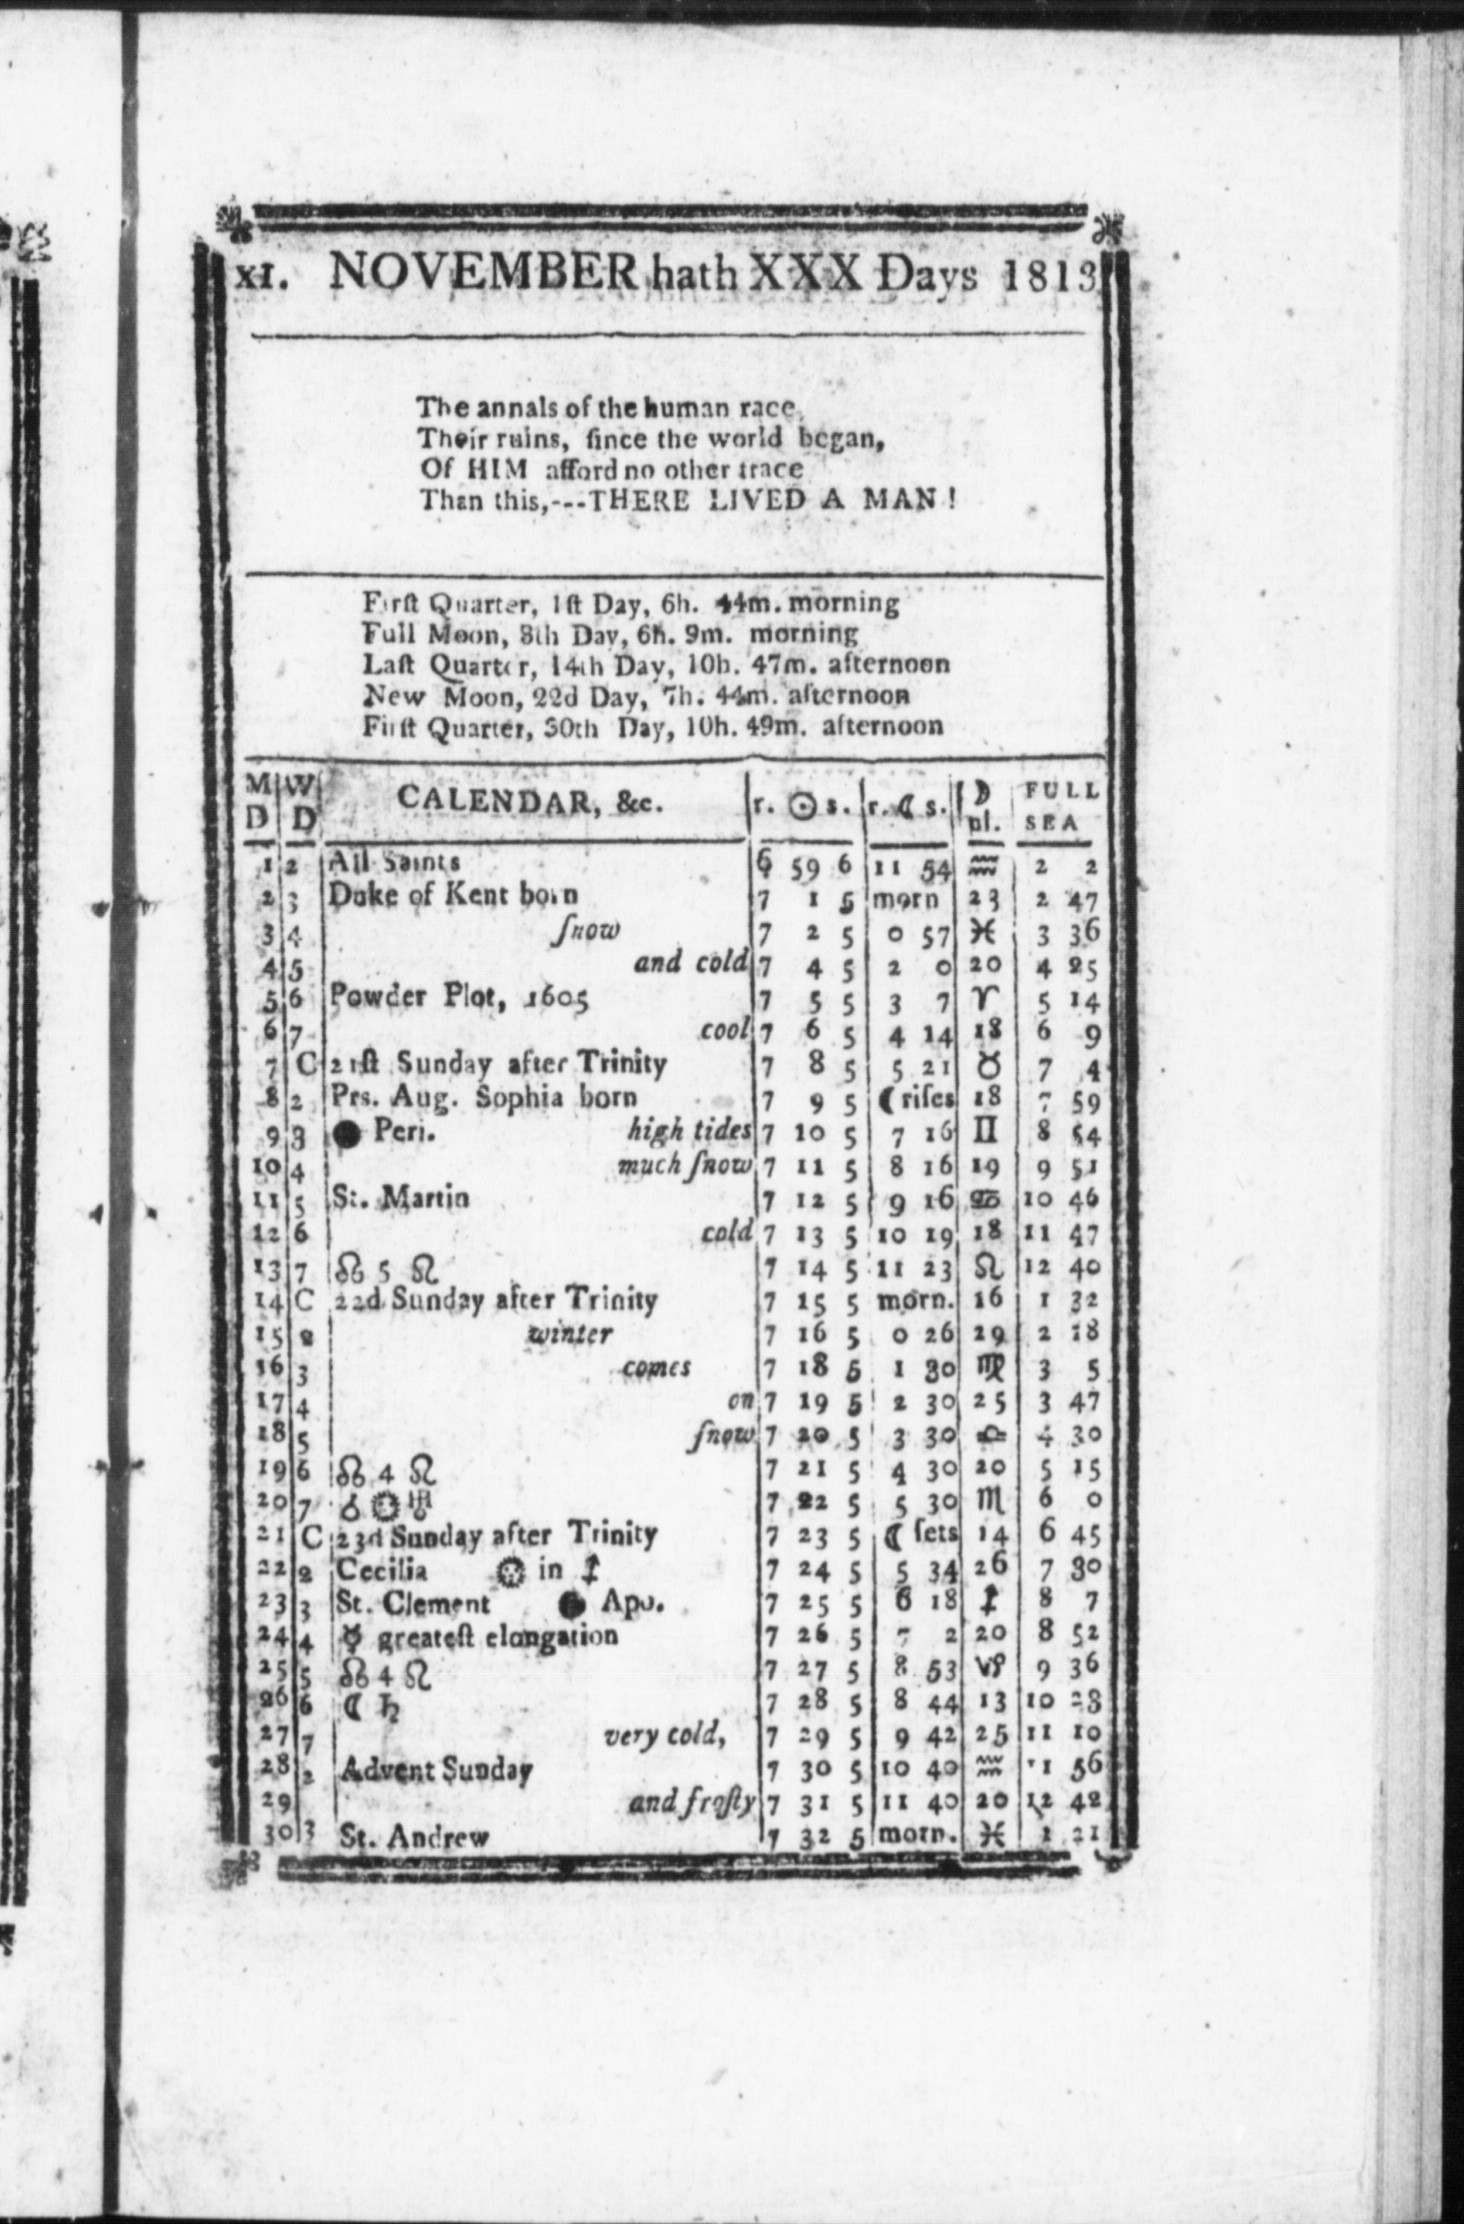 XI. NOVEMBER hath XXX Days 1813
The annals of the human race,
Their ruins, ſince the world began,
Of HIM afford no other trace
Than this,---THERE LIVED A MAN!
Firſt Quarter, 1ſt Day, 6h. 44m. morning
Full Moon, 8th Day, 6h. 9m. morning
Laſt Quarter, 14th Day, 10h. 47m. afternoon
New Moon, 22d Day, 7h. 44m. afternoon
Firſt Quarter, 30th Day, 10h. 49m. afternoon
M D W D CALENDAR, &c. r. ☉ s. r. ☾ s. ☽ pl. FULL SEA
1 2 All Saints 6 59 6 11 54 ♒ 2 2
2 3 Duke of Kent born 7 1 5 morn 23 2 47
3 4 ſnow 7 2 5 0 57 ♓ 3 36
4 5 and cold 7 4 5 2 0 20 4 25
5 6 Powder Plot, 1605 7 5 5 3 7 ♈ 5 14
6 7 cool 7 6 5 4 14 18 6 9
7 C 21ſt Sunday after Trinity 7 8 5 5 21 ♉ 7 4
8 2 Prs. Aug. Sophia born 7 9 5 ☾riſes 18 7 59
9 3 ● Peri. high tides 7 10 5 7 16 ♊ 8 54
10 4 much ſnow 7 11 5 8 16 19 9 51
11 5 St. Martin 7 12 5 9 16 ♋ 10 46
12 6 cold 7 13 5 10 19 18 11 47
13 7 ☊ 5 ♌ 7 14 5 11 23 ♌ 12 40
14 C 22d Sunday after Trinity 7 15 5 morn. 16 1 32
15 2 winter 7 16 5 0 26 29 2 18
16 3 comes 7 18 5 1 30 ♍ 3 5
17 4 on 7 19 5 2 30 25 3 47
18 5 ſnow 7 20 5 3 30 ♎ 4 30
19 6 ☊ 4 ♌ 7 21 5 4 30 20 5 15
20 7 ☌ ☉ ♅ 7 22 5 5 30 ♏ 6 0
21 C 23d Sunday after Trinity 7 23 5 ☾ ſets 14 6 45
22 2 Cecilia ☉ in ♐ 7 24 5 5 34 26 7 30
23 3 St. Clement ● Apo. 7 25 5 6 18 ♐ 8 7
24 4 ☿ greateſt elongation 7 26 5 7 2 20 8 52
25 5 ☊ 4 ♌ 7 27 5 8 53 ♑ 9 36
26 6 ☾ ♄ 7 28 5 8 44 13 10 23
27 7 very cold, 7 29 5 9 42 25 11 10
28 2 Advent Sunday 7 30 5 10 40 ♒ 11 56
29 and froſty 7 31 5 11 40 20 12 42
30 3 St. Andrew 7 32 5 morn. ♓ 1 21